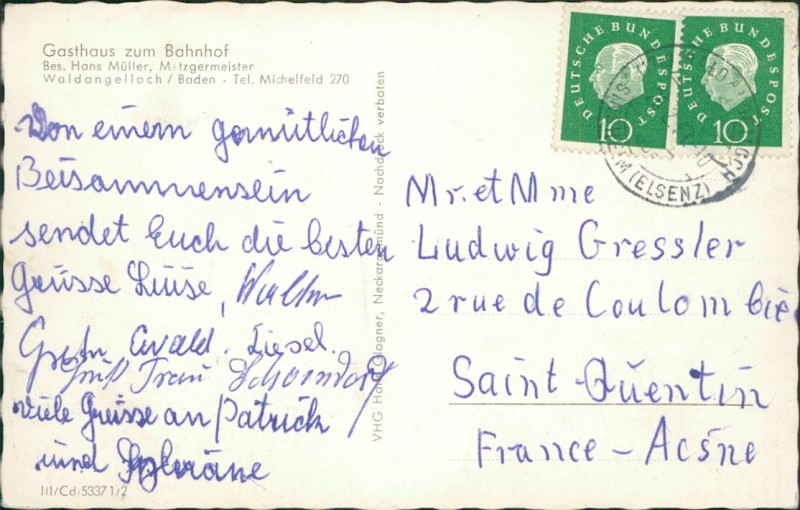 Gasthaus zum Bahnhof
Bes. Hans Müller, Metzgermeister
Waldangelloch / Baden · Tel. Michelfeld 270
Von einem gemütlichen
Beisammensein
sendet Euch die besten
Grüsse Luise, Walter
Ewald. Liesel.
Gruß Frau Schorndorf
viele Grüsse an Patrick
und
III/Cd 5337 1/2
VHG Hans Clogner, Neckargemünd - Nachdruck verboten
DEUTSCHE BUNDESPOST
10
DEUTSCHE BUNDESPOST
10
HEIM (ELSENZ)
Mr. et Mme
Ludwig Gressler
2 rue de Coulombié
Saint-Quentin
France - Acsne